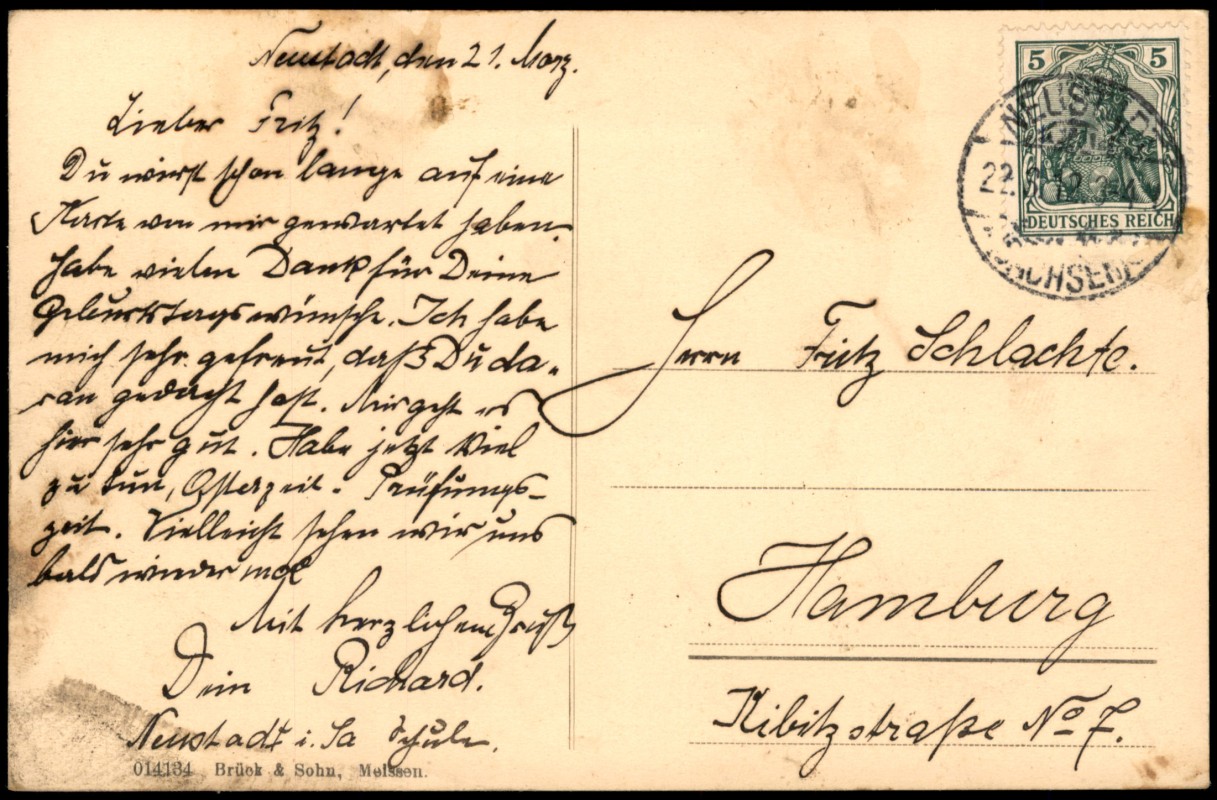 Neustadt, den 21. März.
Lieber Fritz!
Du wirst schon lange auf eine
Karte von mir gewartet haben.
Habe vielen Dank für Deine
Geburtstagswünsche. Ich habe
mich sehr gefreut, daß Du da-
ran gedacht hast. Mir geht es
hier sehr gut. Habe jetzt viel
zu tun, Osterzeit - Prüfungs-
zeit. Vielleicht sehen wir uns
bald wieder mal
Mit herzlichem Gruß
Dein Richard.
Neustadt i. Sa Schule.
014134 Brück & Sohn, Meissen.
5 5
DEUTSCHES REICH
NEUSTADT
22. 12. 3-4
SACHSEN
Herrn Fritz Schlachte.
Hamburg
Kibitzstraße No 7.